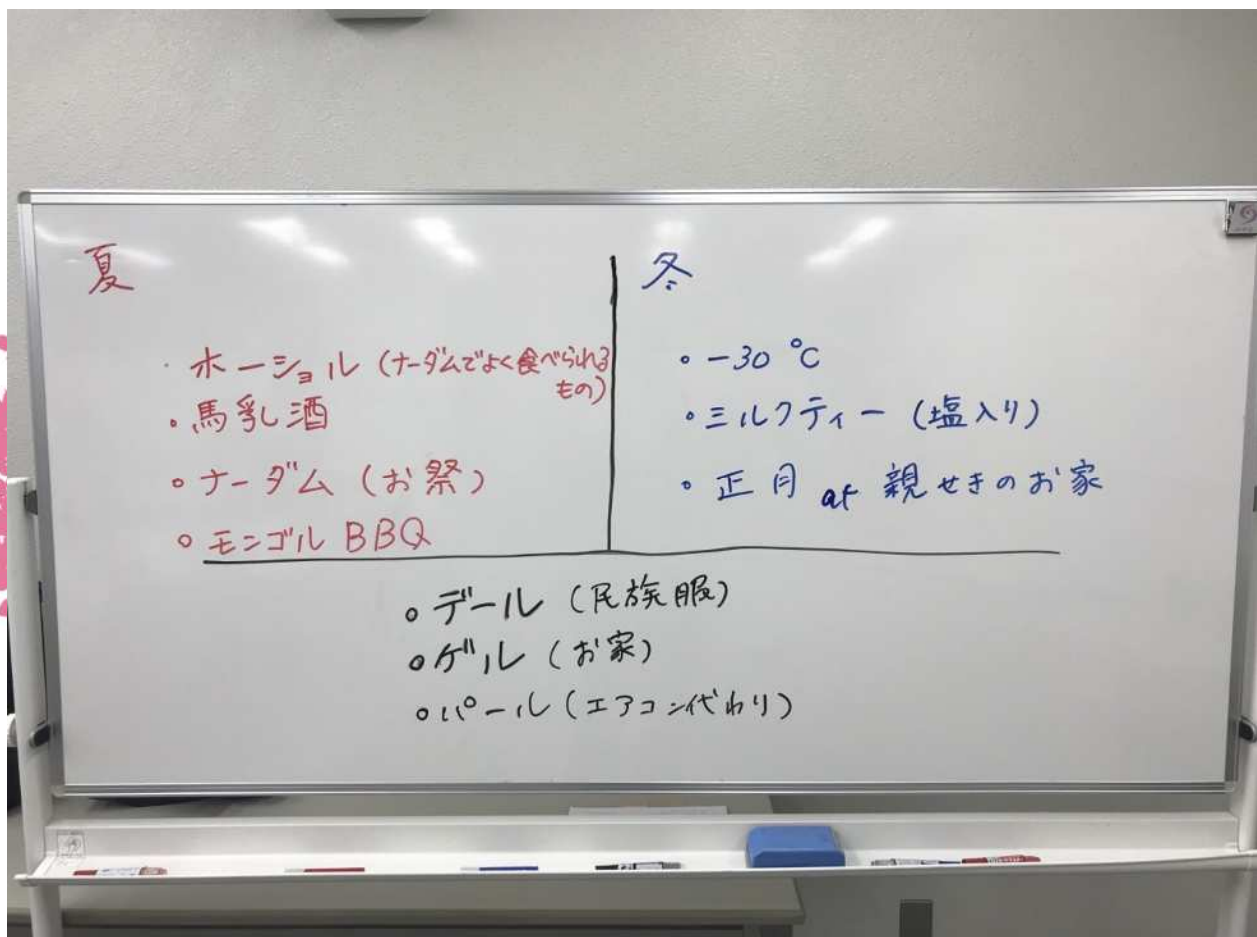 夏
・ホーショル（ナーダムでよく食べられる
もの）
・馬乳酒
・ナーダム（お祭）
・モンゴル BBQ
冬
・-30 ℃
・ミルクティー（塩入り）
・正月 at 親せきのお家
・デール（民族服）
・ゲル（お家）
・パール（エアコン代わり）